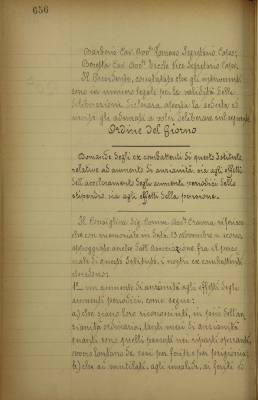 656
Barberis Cav. Avv. Tomaso Segretario Capo,
Beretta Cav. Avv. Ercole Vice Segretario Capo.
Il Presidente, constatato che gli intervenuti
sono in numero legale per la validità delle
deliberazioni, dichiara aperta la seduta ed
invita gli adunati a voler deliberare sul seguente
Ordine del Giorno
Domande degli ex combattenti di questo Istituto
relative ad aumento di anzianità, sia agli effetti
dell'acceleramento degli aumenti periodici dello
stipendio, sia agli effetti della pensione.
Il Consigliere Sig. Comm. Avv. riferisce
che con memoriale in data 13 Novembre u. scorso,
appoggiato anche dall'Associazione fra il perso-
nale di questo Istituto, i nostri ex combattenti
chiedono:
1° un aumento di anzianità agli effetti degli
aumenti periodici, come segue:
a) che siano loro riconosciuti, in più dell'an-
zianità ordinaria, tanti mesi di anzianità
quanti sono quelli passati nei riparti operanti,
ovvero lontano da essi per ferite o per prigionia;
b) che ai mutilati, agli invalidi, ai feriti di